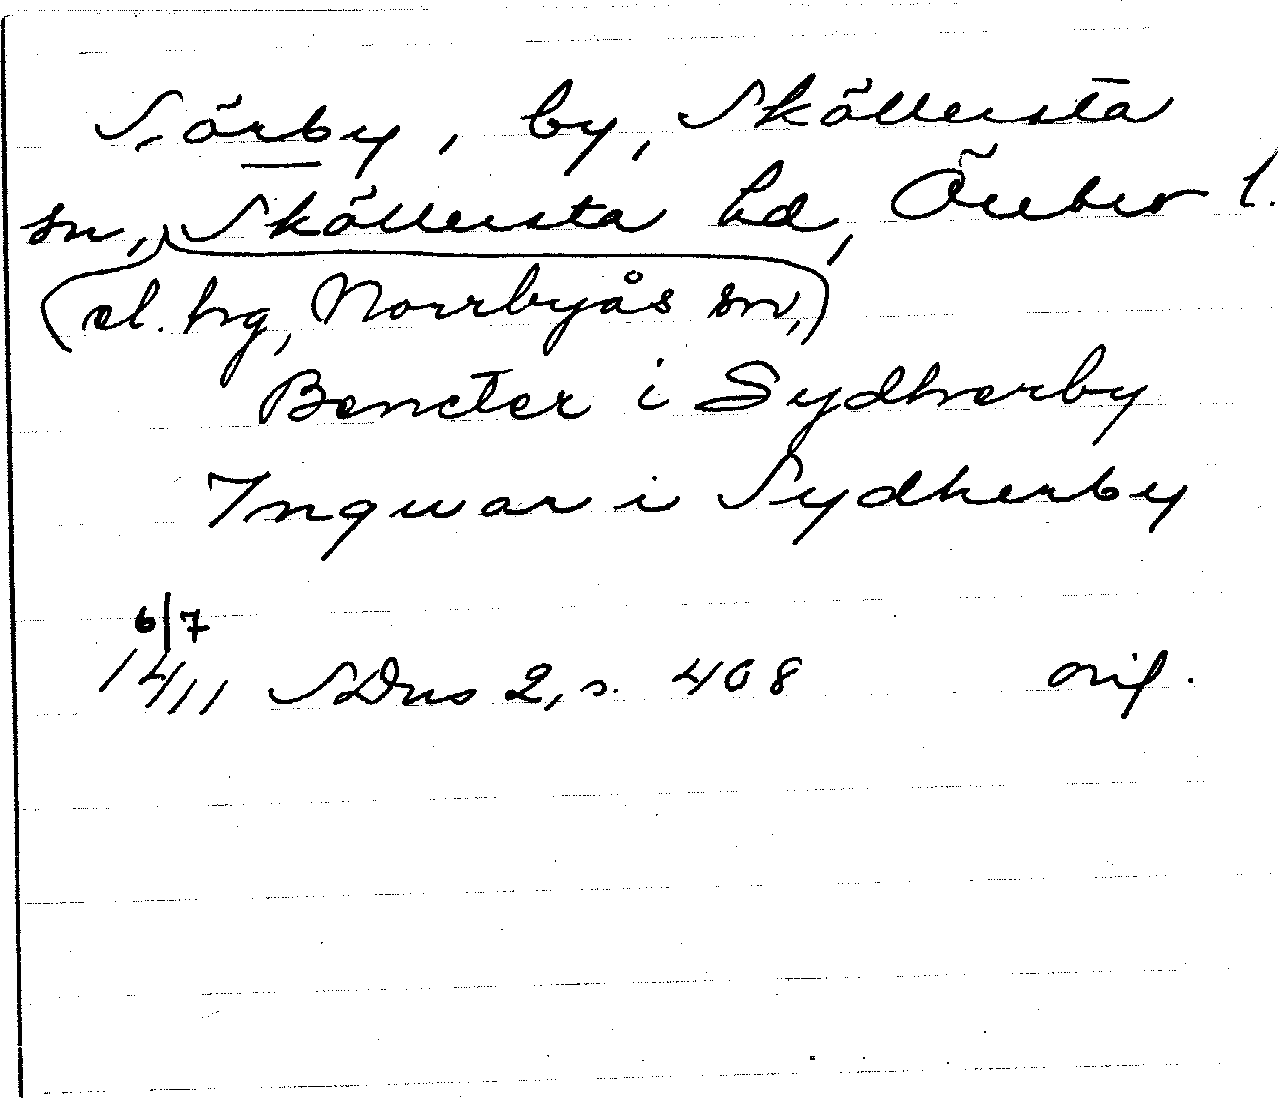 Sörby, by, Sköllersta
sn, Sköllersta hd, Örebro l.
(el. hg, Norrbyås sn,)
Bencter i Sydherby
Ingwar i Sydherby
6/7
14/11 SDns 2, s. 408 orig.